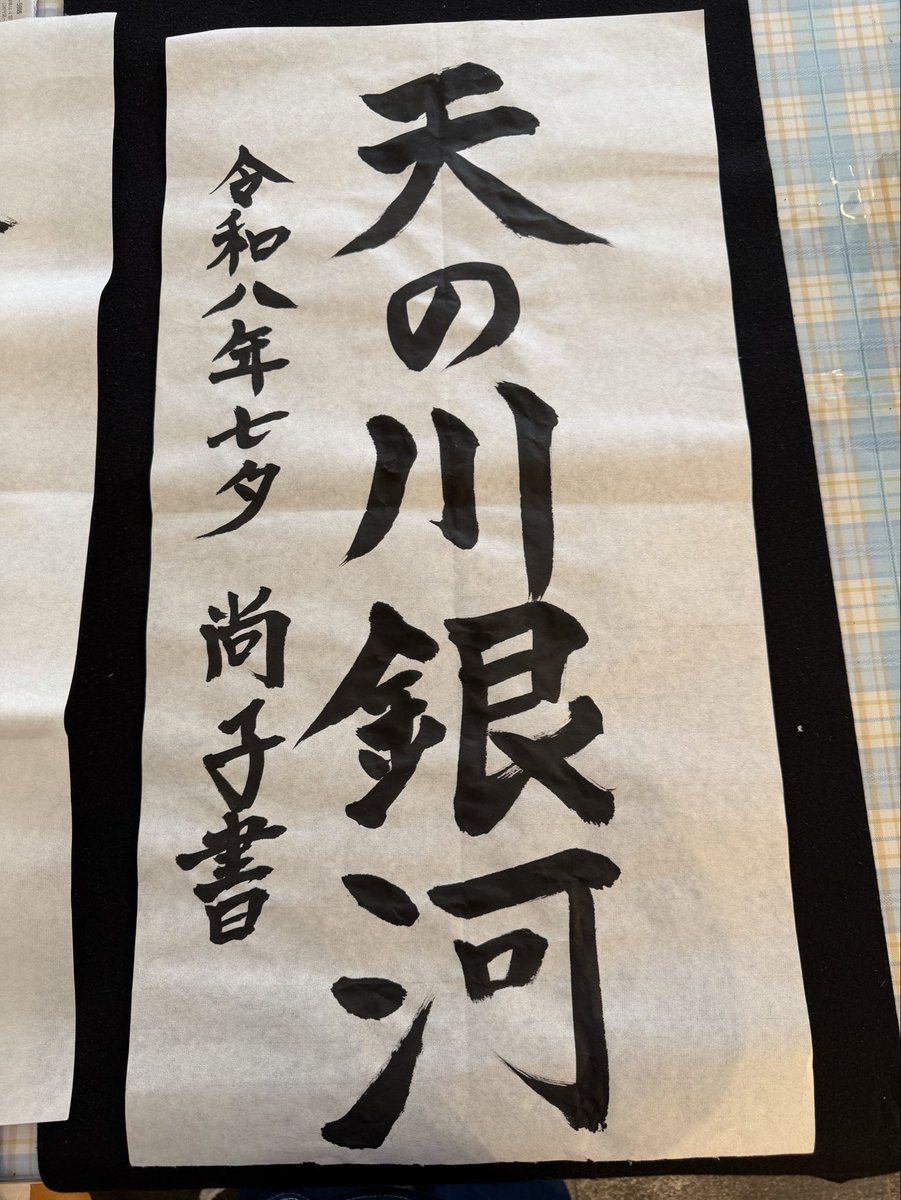 天の川銀河
令和八年七夕 尚子書